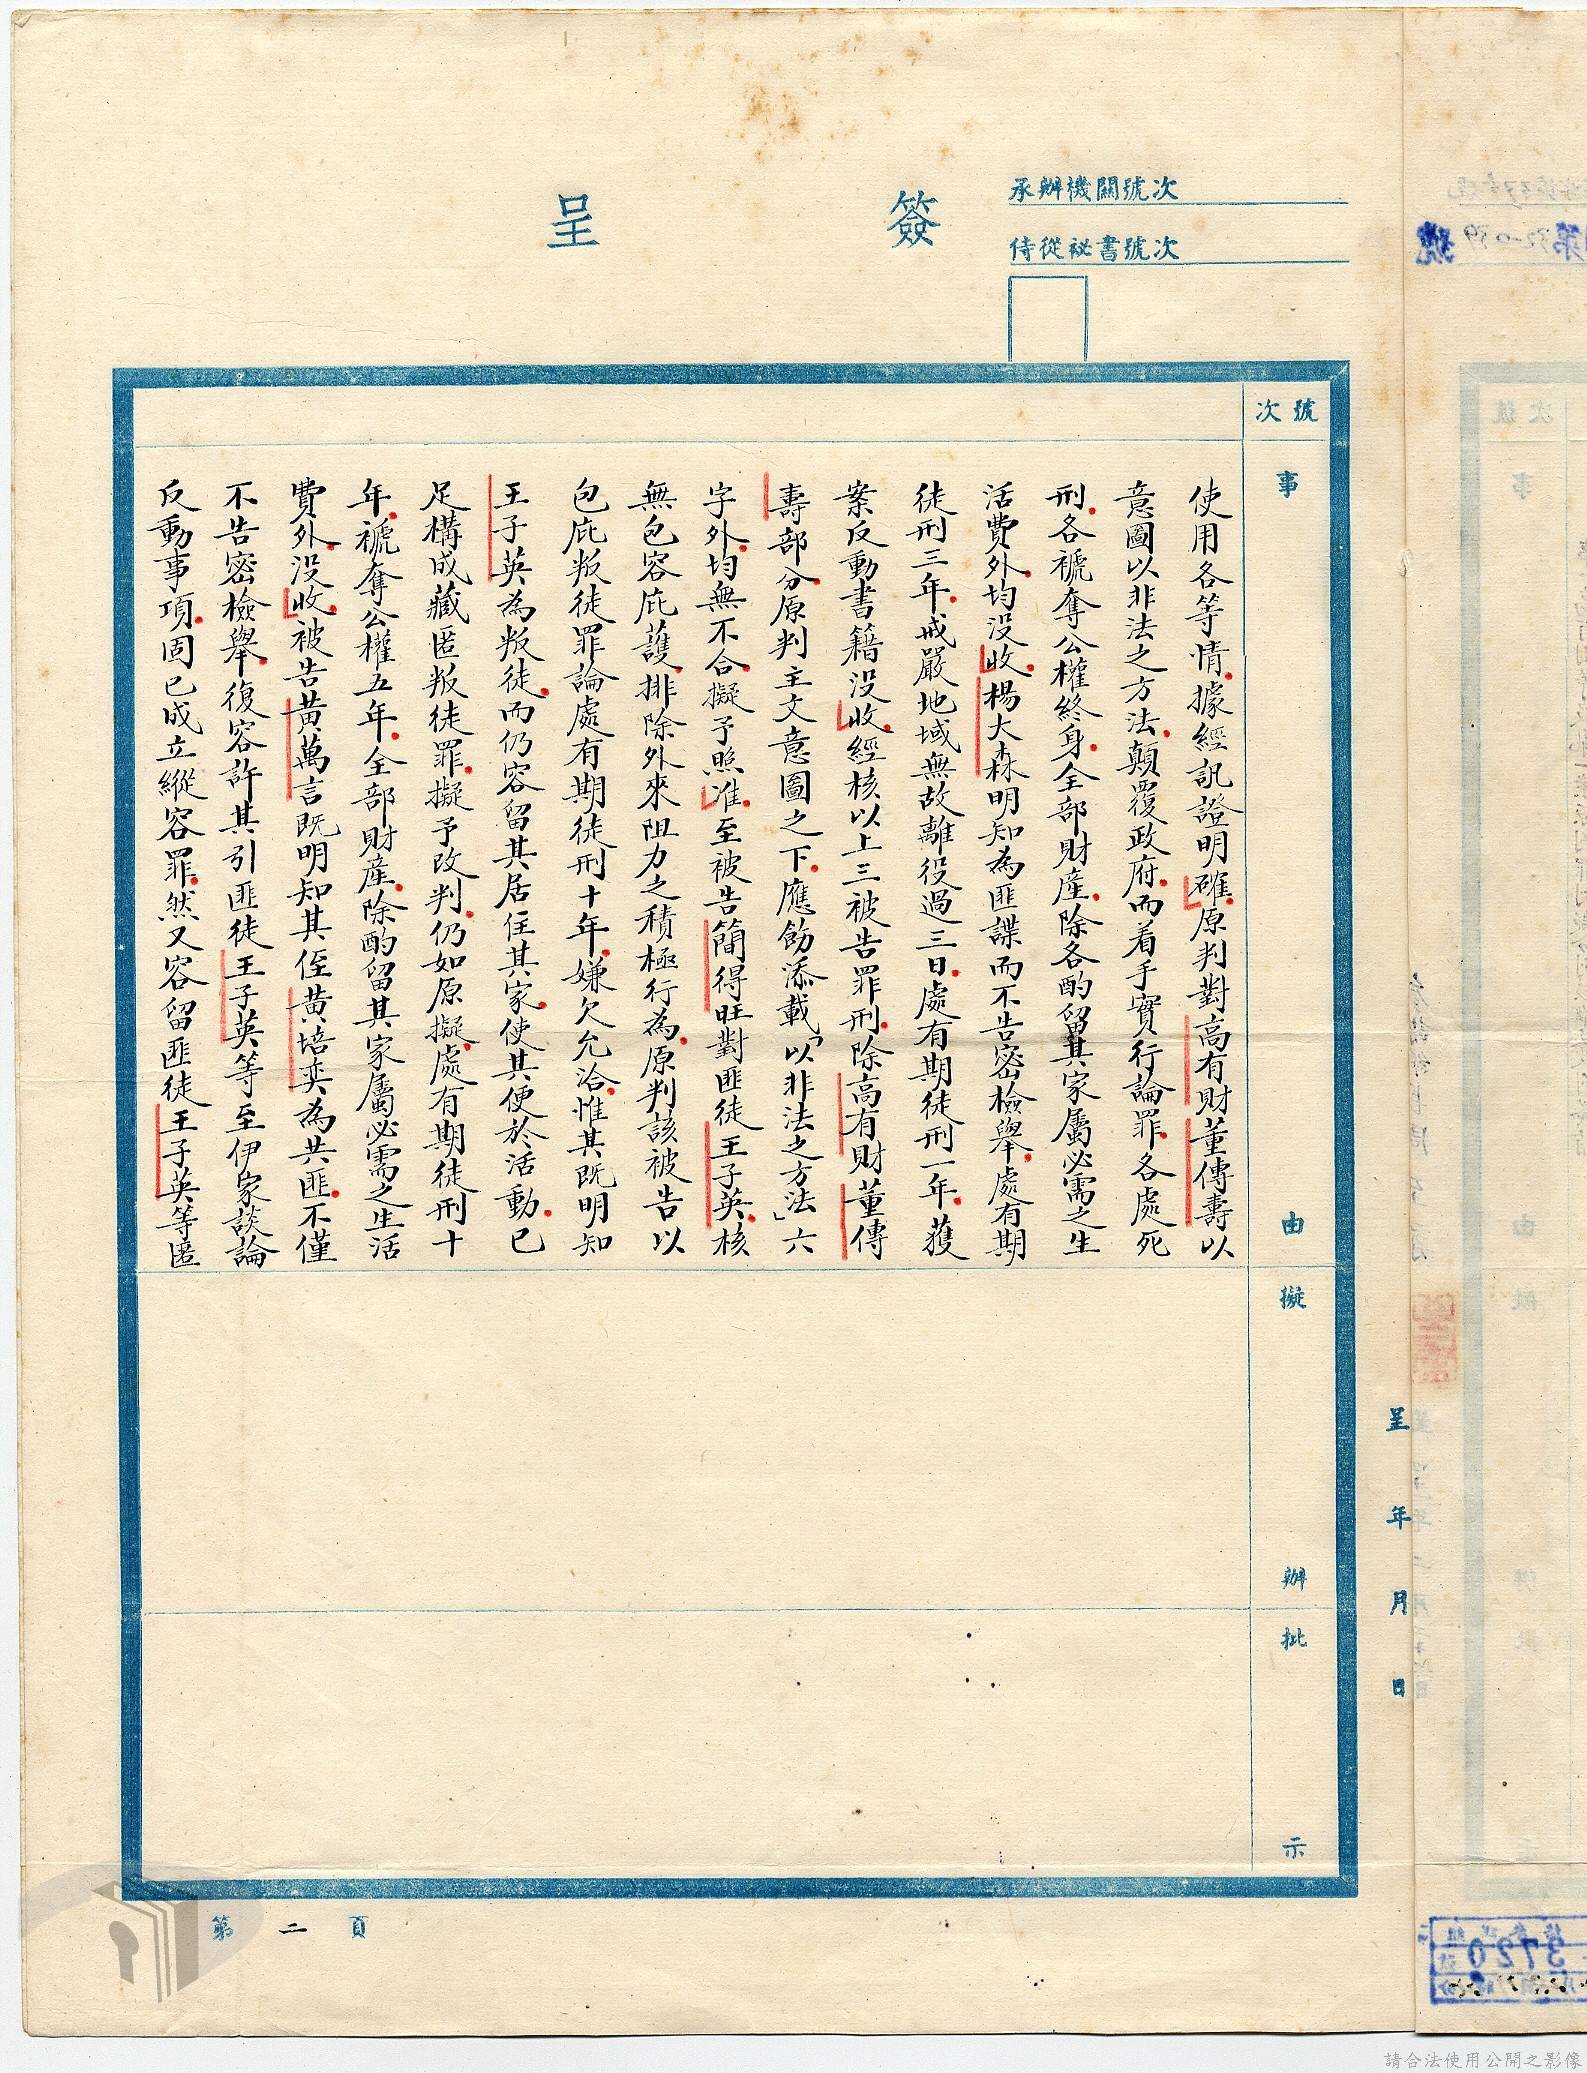 簽呈
承辦機關號次
侍從祕書號次
號次
事由
擬辦
批示
呈 年 月 日
使用各等情據經訊證明確原判對高有財董傳壽以
意圖以非法之方法顛覆政府而着手實行論罪各處死
刑各褫奪公權終身全部財產除各酌留其家屬必需之生
活費外均沒收楊大森明知為匪諜而不告密檢舉處有期
徒刑三年戒嚴地域無故離役過三日處有期徒刑一年獲
案反動書籍沒收經核以上三被告罪刑除高有財董傳
壽部分原判主文意圖之下應飭添載「以非法之方法」六
字外均無不合擬予照准至被告簡得旺對匪徒王子英核
無包容庇護排除外來阻力之積極行為原判該被告以
包庇叛徒罪論處有期徒刑十年嫌欠允洽惟其既明知
王子英為叛徒而仍容留其居住其家使其便於活動已
足構成藏匿叛徒罪擬予改判仍如原擬處有期徒刑十
年褫奪公權五年全部財產除酌留其家屬必需之生活
費外沒收被告黃萬言既明知其侄黃培奕為共匪不僅
不告密檢舉復容許其引匪徒王子英等至伊家談論
反動事項固已成立縱容罪然又容留匪徒王子英等匿
第二頁
3720
請合法使用公開之影像